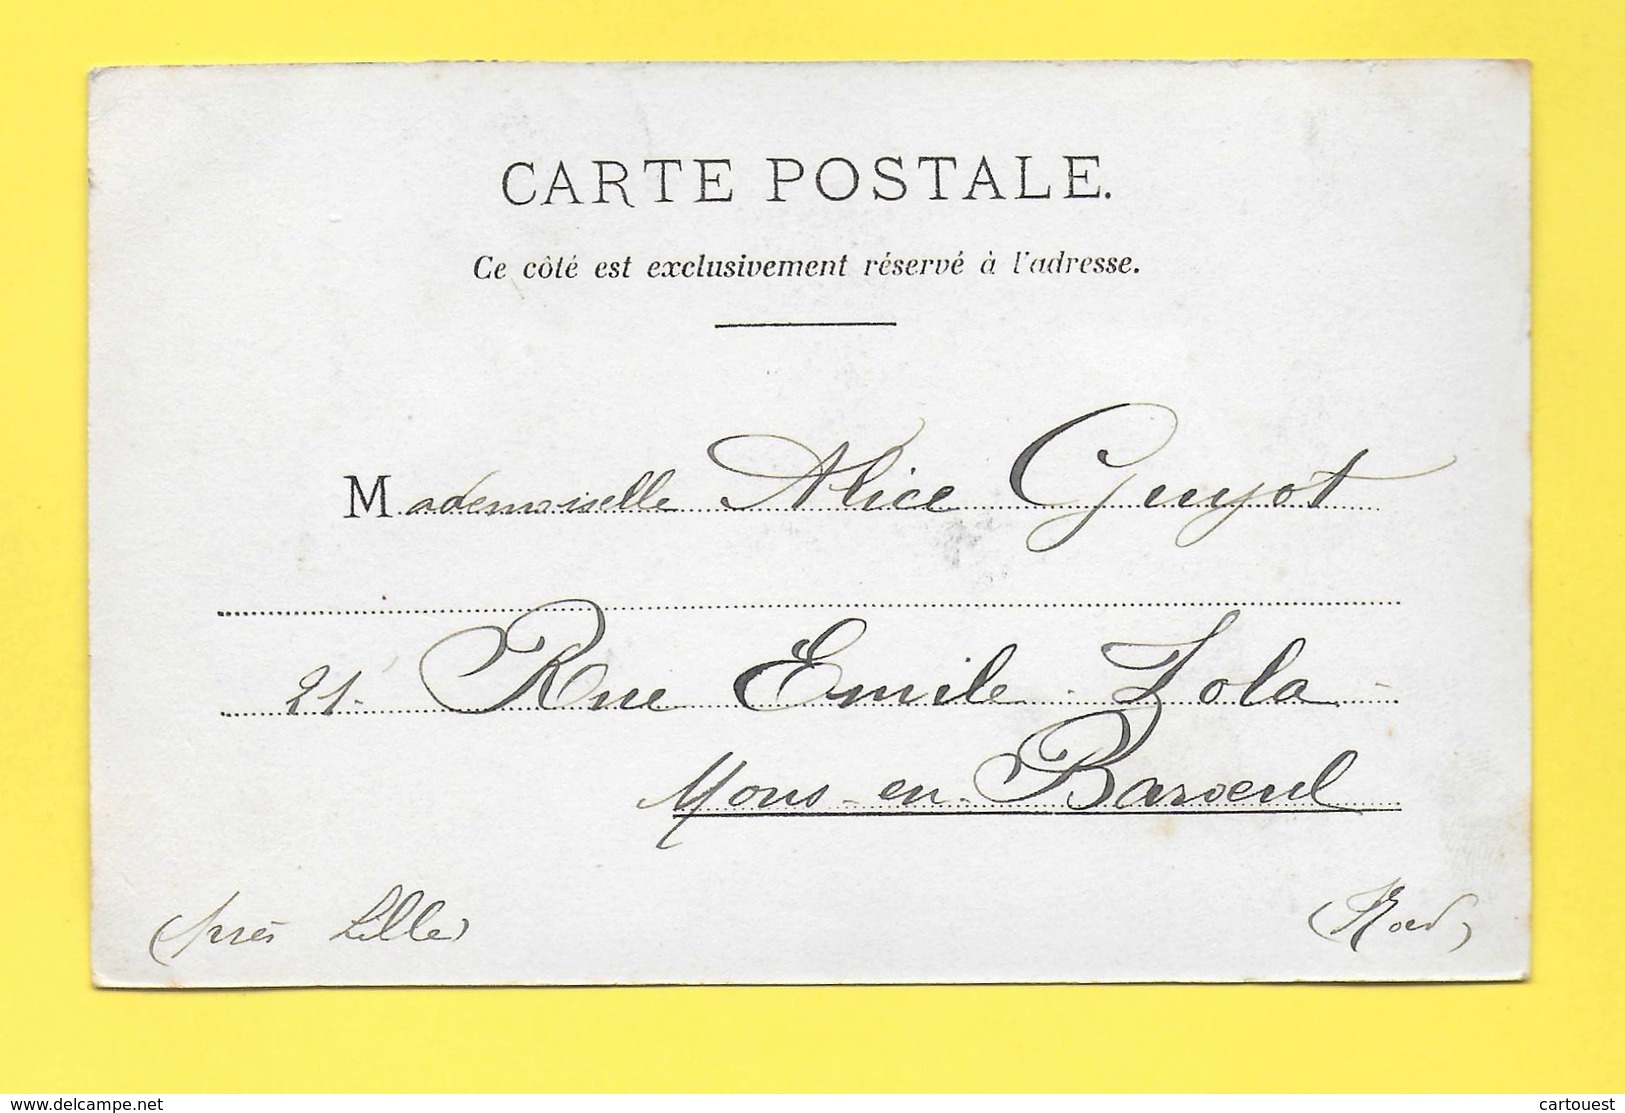 CARTE POSTALE.
Ce côté est exclusivement réservé à l'adresse.
Mademoiselle Alice Guyot
21. Rue Emile Zola
Mons-en-Baroeul
(près Lille) (Nord)
www.delcampe.net cartouest